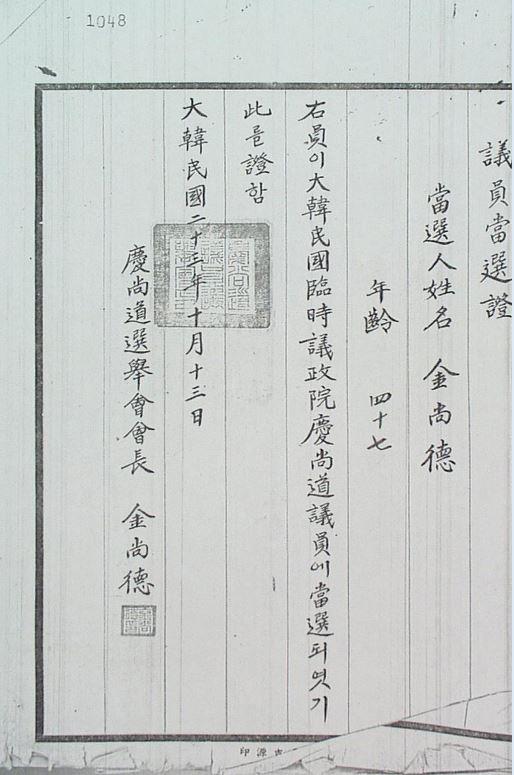 1048
議員當選證
當選人姓名 金尙德
年齡 四十七
右員이大韓民國臨時議政院慶尙道議員에當選되엿기
此를證함
大韓民國二十三年十月十三日
慶尙道選擧會會長 金尙德